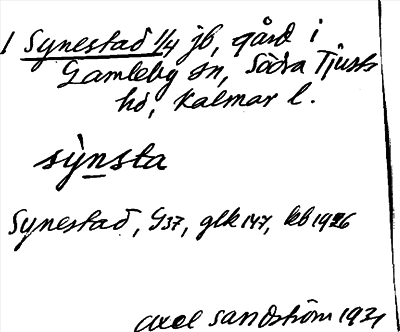 1 Synestad 1/4 jb, gård i
Gamleby sn, Södra Tjusts
hd, Kalmar l.
sỳnsta
Synestad, G37, glk 147, kb 1926
Axel Sandström 1931